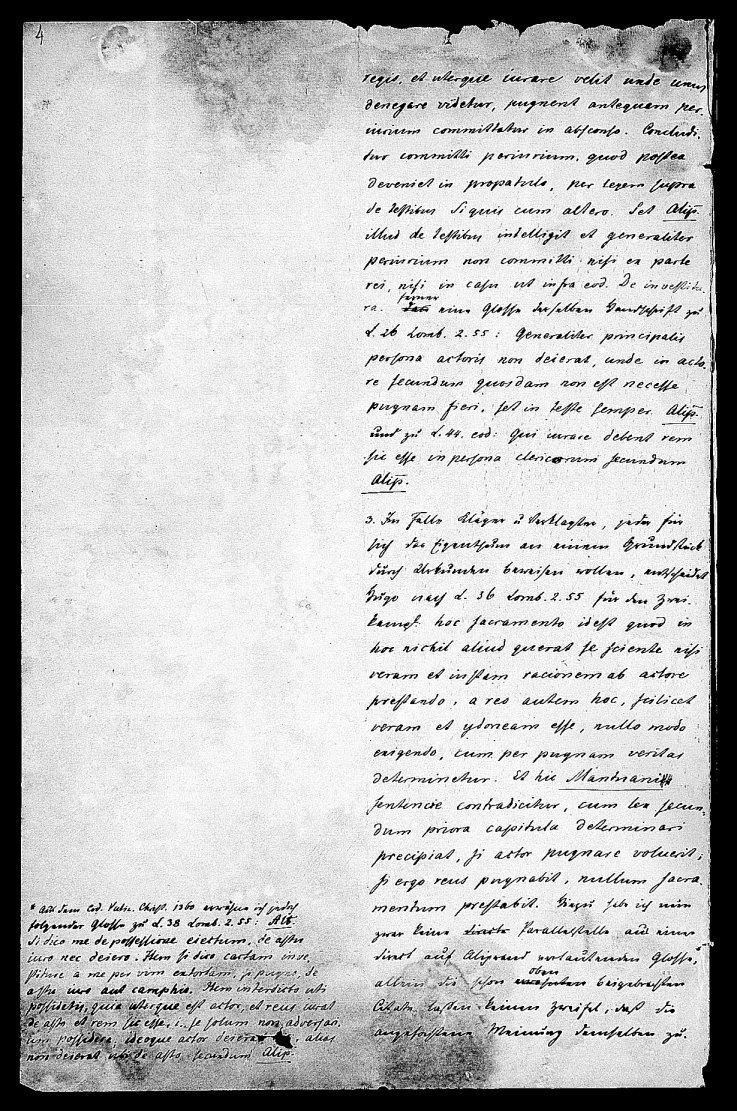 4
1
regis, et uterque iurare velit unde unus
denegare videtur, pugnent antequam per-
iurium committatur in absconso. Concludi-
tur committi periurium, quod postea
deveniet in propatulo, per legem supra
de testibus Si quis cum altero. Set Alip.
illud de testibus intelligit et generaliter
periurium non committi nisi ex parte
rei, nisi in casu ut infra eod. De investitu-
ra. ferner eine Glosse derselben Handschrift zu
L. 26 Lomb. 2. 55: Generaliter principalis
persona actoris non deierat, unde in acto-
re secundum quosdam non est necesse
pugnam fieri, set in teste semper. Alip.
und zu L. 44. eod: Qui iurare debent rem
sic esse in persona clericorum secundum
Alip.
3. Im Falle Kläger u Verklagter, jeder für
sich das Eigenthum an einem Grundstück
durch Urkunden beweisen wollen, entscheidet
Hugo nach L. 36 Lomb. 2. 55 für den Zwei-
kampf: hoc sacramento idest quod in
hoc nichil aliud querat se sciente nisi
veram et iustam racionem ab actore
prestando, a reo autem hoc, scilicet
veram et ydoneam esse, nullo modo
exigendo, cum per pugnam veritas
determinetur. Et hic Mantuani
sentencie contradicitur, cum lex secun-
dum priora capitula determinari
precipiat, si actor pugnare voluerit;
si ergo reus pugnabit, nullum sacra-
mentum prestabit. Hiezu habe ich nun
zwar keine directe Parallelstelle aus einer
direct auf Aliprand verlautenden Glosse,*
allein die schon oben beigebrachten
Citate lassen keinen Zweifel, daß die
angefochtene Meinung demselben zu-
* Aus dem Cod. Vatic. Christ. 1060 erwähne ich jedoch
folgender Glosse zu L. 38 Lomb. 2. 55: Alb.
Si dico me de possessione eiectum, de astu
iuro nec deiero. Item si dico cartam inve-
stiture a me per vim extortam, si pugno, de
asto iuro aut camphio. Item interdicto uti
possidetis, quia uterque est actor, et reus iurat
de asto et rem sic esse, i. se solum non adversari-
um possidere, ideoque actor deierat, alias
non deierat nisi de asto, secundum Alip.